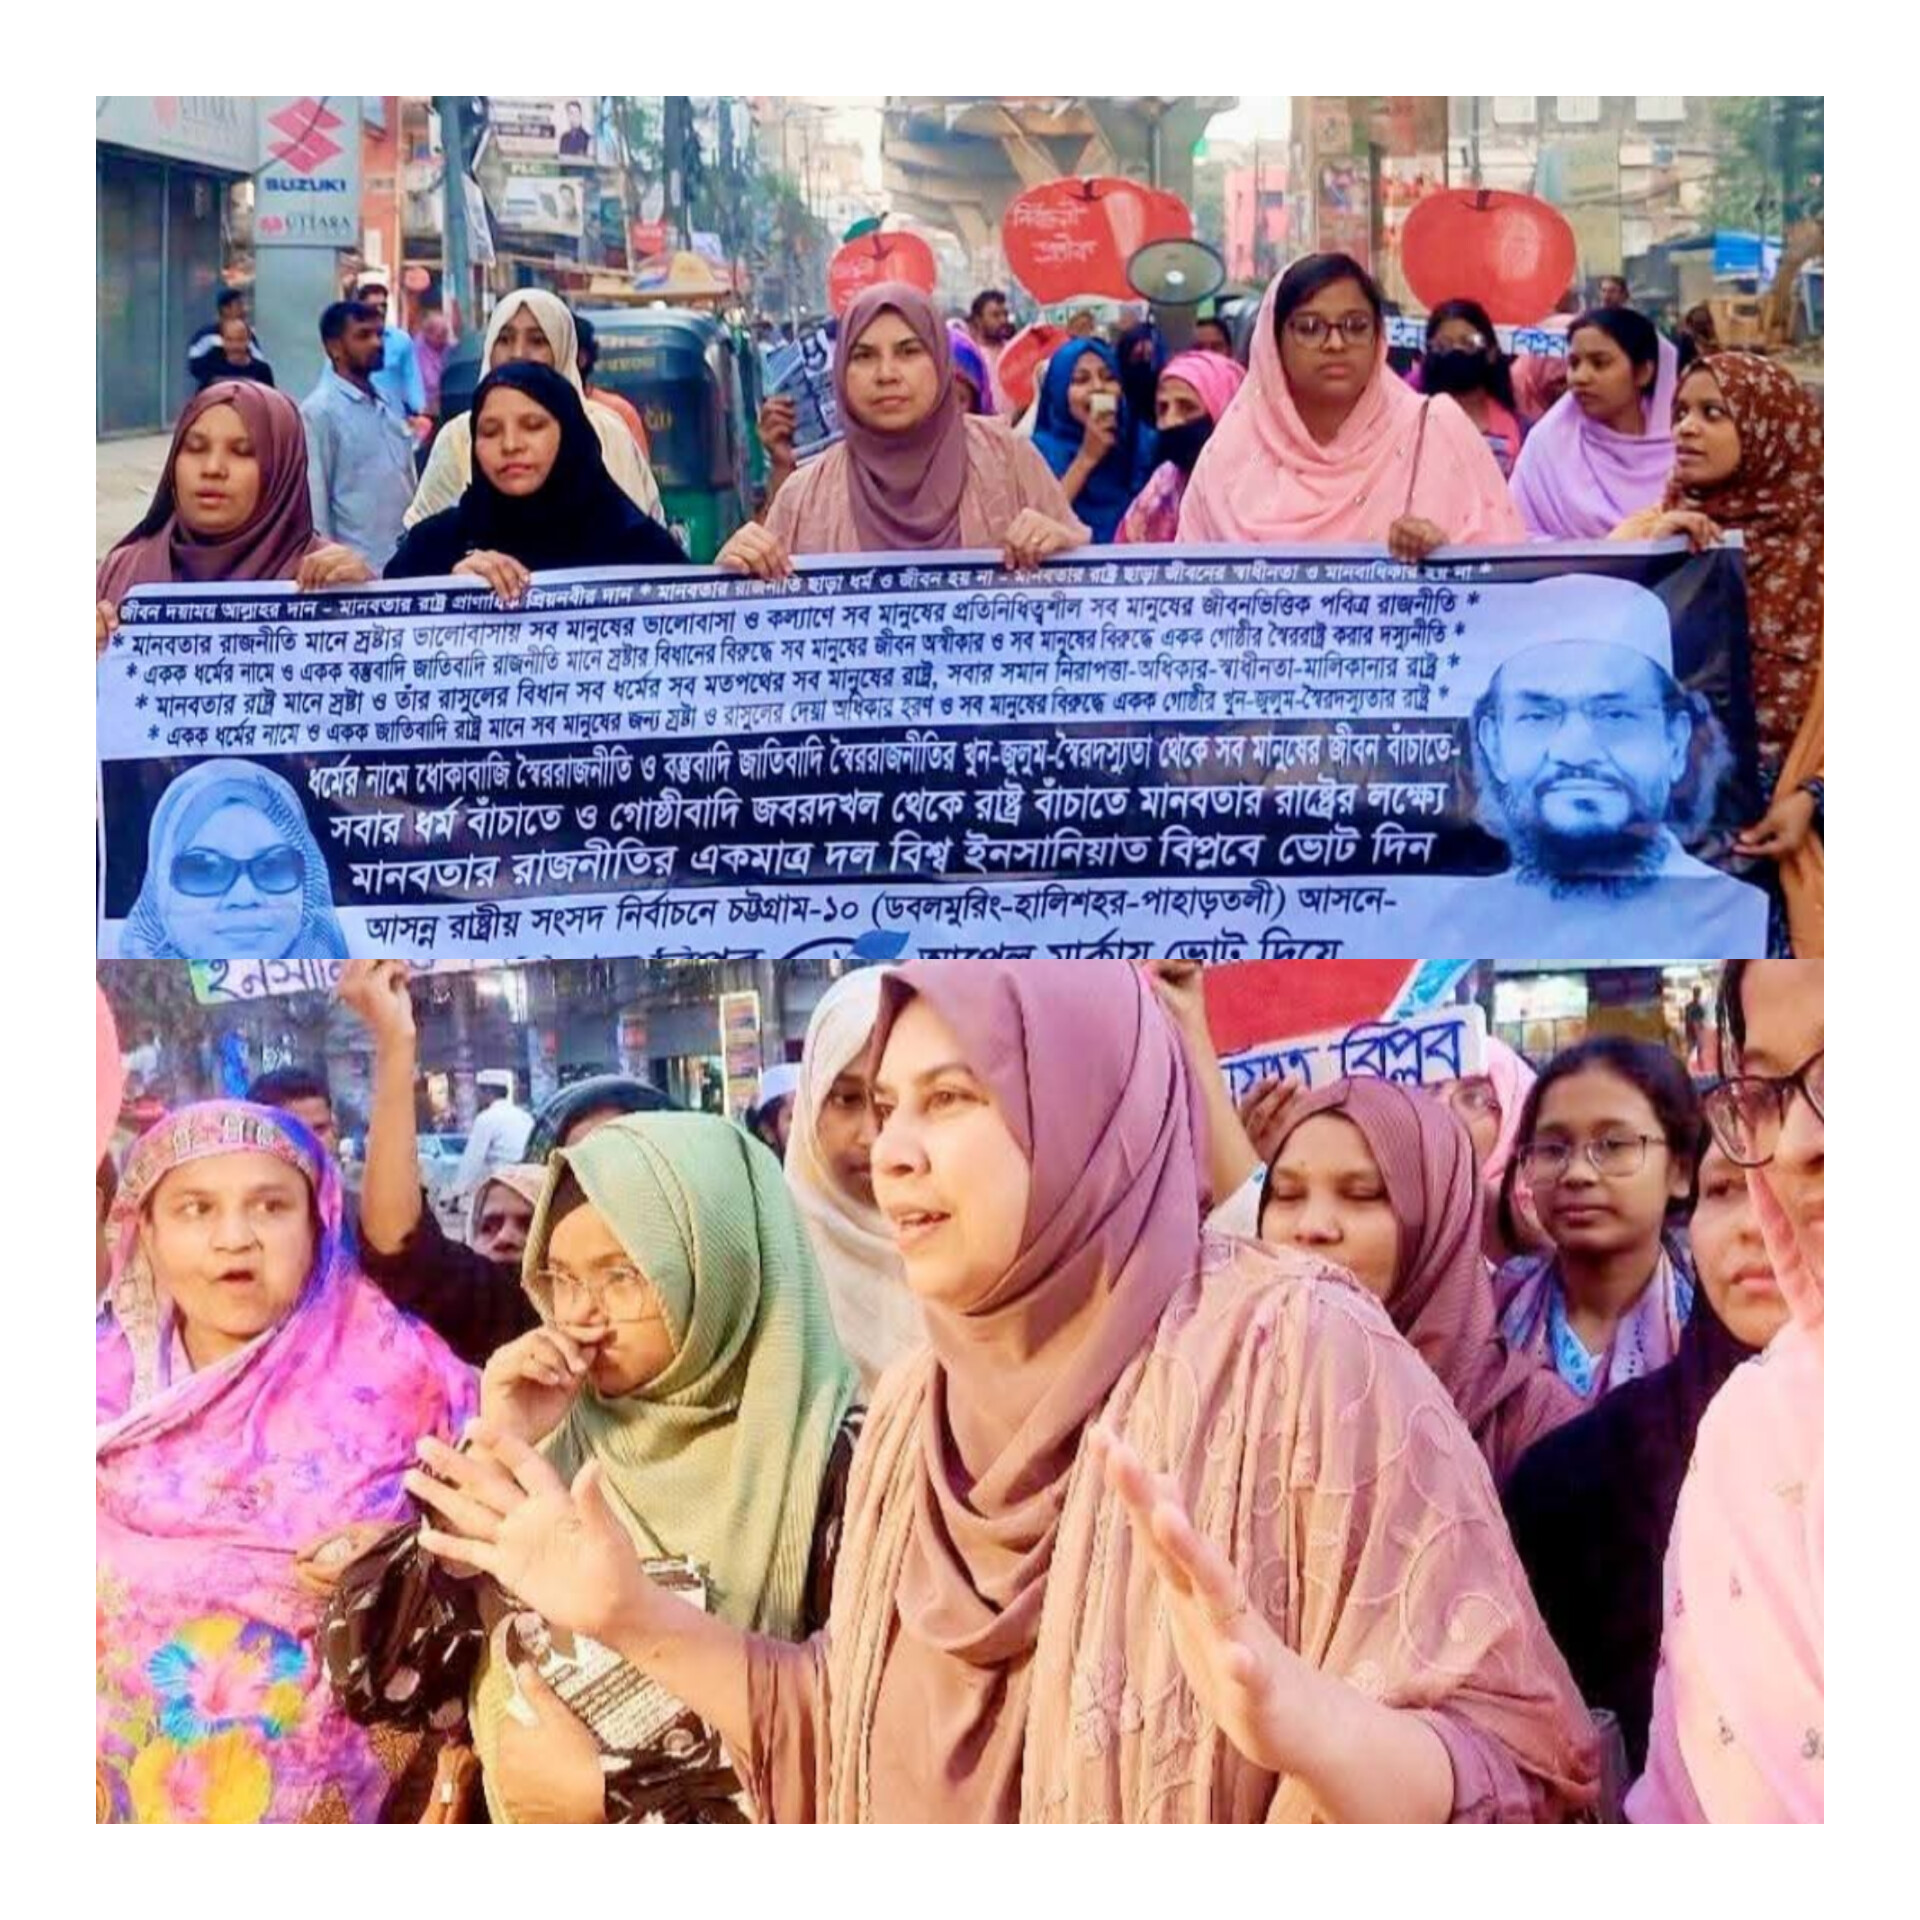 SUZUKI
UTTARA
নির্বাচনী
প্রতীক
বিপ্লব
জীবন দয়াময় আল্লাহর দান - মানবতার রাষ্ট্র প্রাণাধিক প্রিয়নবীর দান * মানবতার রাজনীতি ছাড়া ধর্ম ও জীবন হয় না - মানবতার রাষ্ট্র ছাড়া জীবনের স্বাধীনতা ও মানবাধিকার হয় না *
* মানবতার রাজনীতি মানে স্রষ্টার ভালোবাসায় সব মানুষের ভালোবাসা ও কল্যাণে সব মানুষের প্রতিনিধিত্বশীল সব মানুষের জীবনভিত্তিক পবিত্র রাজনীতি *
* একক ধর্মের নামে ও একক বস্তুবাদি জাতিবাদি রাজনীতি মানে স্রষ্টার বিধানের বিরুদ্ধে সব মানুষের জীবন অস্বীকার ও সব মানুষের বিরুদ্ধে একক গোষ্ঠীর স্বৈররাষ্ট্র করার দস্যুনীতি *
* মানবতার রাষ্ট্র মানে স্রষ্টা ও তাঁর রাসুলের বিধান সব ধর্মের সব মতপথের সব মানুষের রাষ্ট্র, সবার সমান নিরাপত্তা-অধিকার-স্বাধীনতা-মালিকানার রাষ্ট্র *
* একক ধর্মের নামে ও একক জাতিবাদি রাষ্ট্র মানে সব মানুষের জন্য স্রষ্টা ও রাসুলের দেয়া অধিকার হরণ ও সব মানুষের বিরুদ্ধে একক গোষ্ঠীর খুন-জুলুম-স্বৈরদস্যুতার রাষ্ট্র *
ধর্মের নামে ধোকাবাজি স্বৈররাজনীতি ও বস্তুবাদি জাতিবাদি স্বৈররাজনীতির খুন-জুলুম-স্বৈরদস্যুতা থেকে সব মানুষের জীবন বাঁচাতে-
সবার ধর্ম বাঁচাতে ও গোষ্ঠীবাদি জবরদখল থেকে রাষ্ট্র বাঁচাতে মানবতার রাষ্ট্রের লক্ষ্যে
মানবতার রাজনীতির একমাত্র দল বিশ্ব ইনসানিয়াত বিপ্লবে ভোট দিন
আসন্ন রাষ্ট্রীয় সংসদ নির্বাচনে চট্টগ্রাম-১০ (ডবলমুরিং-হালিশহর-পাহাড়তলী) আসনে-
আপেল মার্কায় ভোট দিয়ে
বিপ্লব